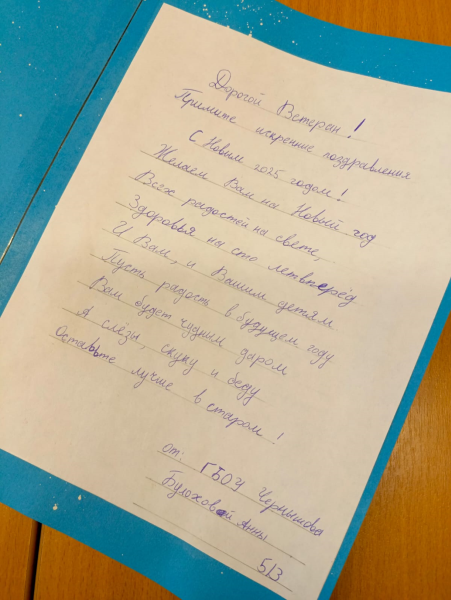 Дорогой Ветеран!
Примите искренние поздравления
С Новым 2025 годом!
Желаем Вам на Новый год
Всех радостей на свете,
Здоровья на сто лет вперёд
И Вам, и Вашим детям.
Пусть радость в будущем году
Вам будет чудным даром
А слёзы, скуку и беду
Оставьте лучше в старом!
от: ГБОУ Чернышова
Анны
513